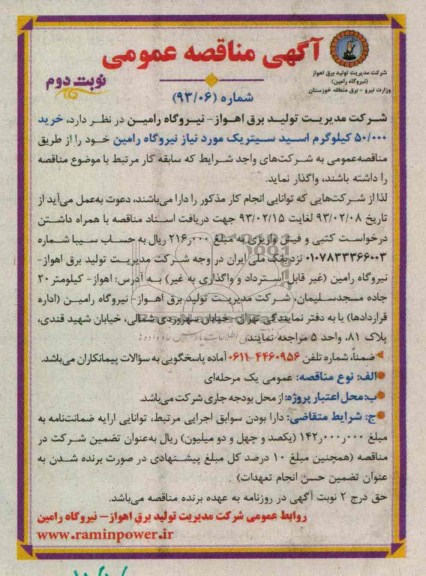 آگهی مناقصه عمومی
شرکت مدیریت تولید برق اهواز
(نیروگاه رامین)
وزارت نیرو - برق منطقه خوزستان
نوبت دوم
شماره (۹۳/۰۶)
شرکت مدیریت تولید برق اهواز- نیروگاه رامین در نظر دارد، خرید
۵۰/۰۰۰ کیلوگرم اسید سیتریک مورد نیاز نیروگاه رامین خود را از طریق
مناقصه‌عمومی به شرکت‌های واجد شرایط که سابقه کار مرتبط با موضوع مناقصه
را داشته باشند، واگذار نماید.
لذا از شرکت‌هایی که توانایی انجام کار مذکور را دارا می‌باشند، دعوت به‌عمل می‌آید از
تاریخ ۹۳/۰۲/۰۸ لغایت ۹۳/۰۲/۱۵ جهت دریافت اسناد مناقصه با همراه داشتن
درخواست کتبی و فیش واریزی به مبلغ ۲۱۶٫۰۰۰ ریال به حساب سیبا شماره
۰۱۰۷۸۳۳۳۶۶۰۰۳ نزد بانک ملی ایران در وجه شرکت مدیریت تولید برق اهواز-
نیروگاه رامین (غیر قابل استرداد و واگذاری به غیر) به آدرس: اهواز- کیلومتر ۲۰
جاده مسجدسلیمان، شرکت مدیریت تولید برق اهواز- نیروگاه رامین (اداره
قراردادها) یا به دفتر نمایندگی تهران، خیابان سهروردی شمالی، خیابان شهید قندی،
پلاک ۸۱، واحد ۵ مراجعه نمایند.
ضمناً، شماره تلفن ۴۴۶۰۹۵۶-۰۶۱۱ آماده پاسخگویی به سؤالات پیمانکاران می‌باشد.
الف: نوع مناقصه: عمومی یک مرحله‌ای
ب: محل اعتبار پروژه: از محل بودجه جاری شرکت می‌باشد.
ج: شرایط متقاضی: دارا بودن سوابق اجرایی مرتبط، توانایی ارایه ضمانت‌نامه به
مبلغ ۱۴۲٫۰۰۰٫۰۰۰ (یکصد و چهل و دو میلیون) ریال به‌عنوان تضمین شرکت در
مناقصه (همچنین مبلغ ۱۰ درصد کل مبلغ پیشنهادی در صورت برنده شدن به
عنوان تضمین حسن انجام تعهدات)
حق درج ۲ نوبت آگهی در روزنامه به عهده برنده مناقصه می‌باشد.
روابط عمومی شرکت مدیریت تولید برق اهواز- نیروگاه رامین
www.raminpower.ir